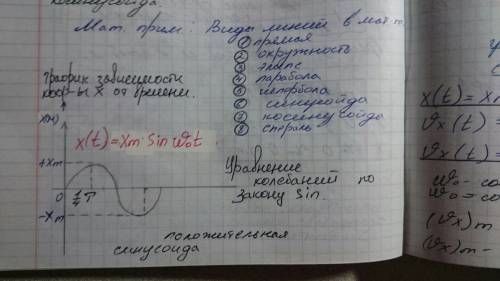 косинусоида.
Мат. прим: Виды линий в мат-
① прямая
② окружность
③ элипс
④ парабола
⑤ гипербола
⑥ синусойда
⑦ косинусойда
⑧ спираль
График зависимости
коор-ы X от времени.
x(м)
x(t)=Xm·Sin ω₀t
+Xm
0
1/4 T
-Xm
Уравнение
колебаний по
закону Sin.
положительная
синусоида
x(t)= Xm
ϑx(t)=
ϑx(t)=
ω₀-
ω₀=
(ϑx)m-
(ϑx)m-